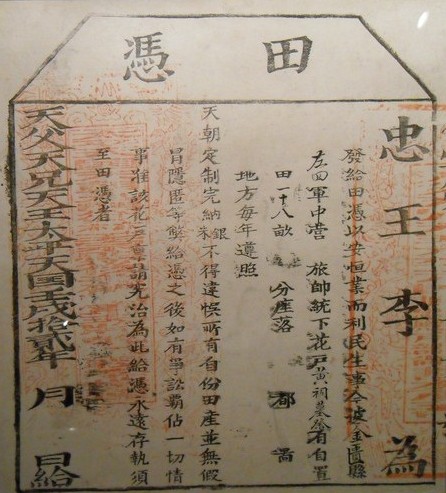 田憑
忠王李 為
發給田憑以安恒業而利民生事今據金匱縣
左四軍中營 旅帥統下花戶黃祠墓祭有自置
田一十八畝 分座落 都 啚
地方每年遵照
天朝定制完納銀米不得違悞所有自份田產並無假
冒隱匿等弊給憑之後如有爭訟霸佔一切情
事准該花戶稟請究治為此給憑永遠存執須
至田憑者
天父天兄天王太平天囯壬戌拾貳年 月 日給